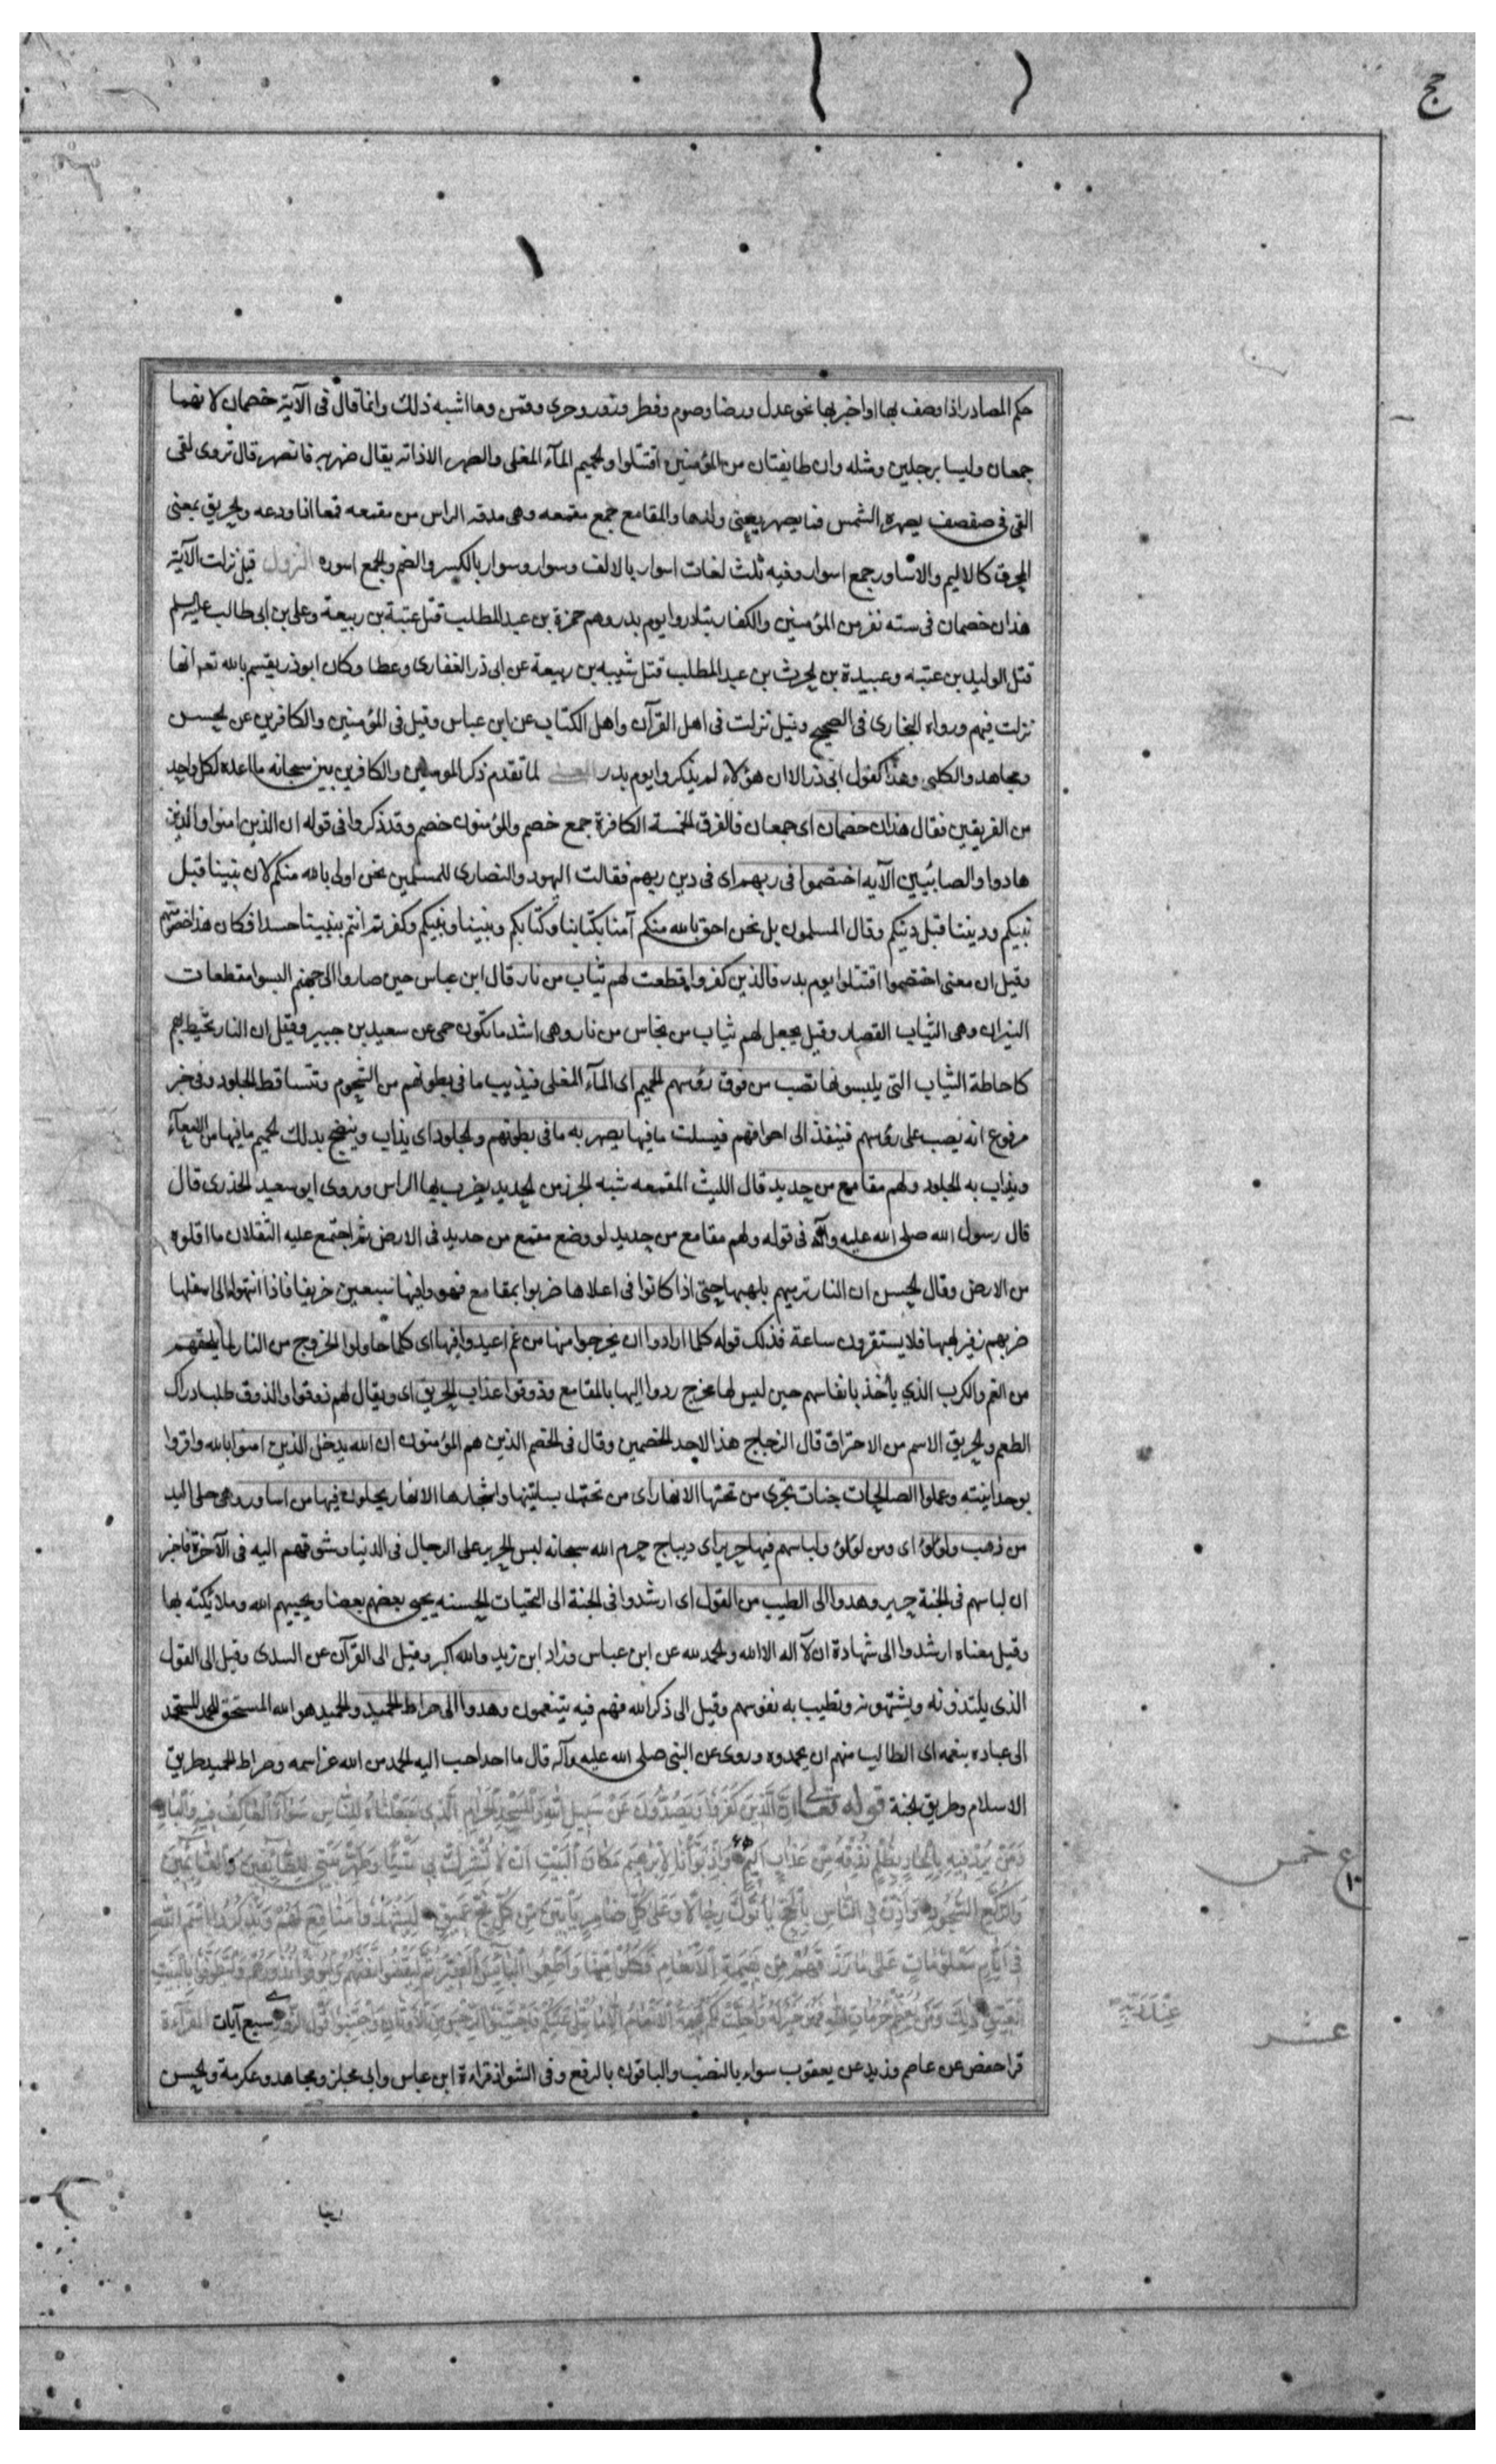 حج
حكم المصادر اذا وصف بها او اخبر بها نحو عدل ورضا وصوم وفطر وزور وحرى وقمن وما اشبه ذلك وانما قال فى الآية خصمان لانهما
جمعان وليسا برجلين ومثله وان طايفتان من المؤمنين اقتتلوا والحميم المآء المغلى والصهر الاذابه يقال صهرته فانصهر قال تروى لقى
القى فى صفصف يصهره الشمس فما ينصهر يعنى ولدها والمقامع جمع مقمعه وهى مدقه الراس من مقمعه قمعا اذا ودعه والحريق بمعنى
المحرق كالاليم والاساور جمع اسوار وفيه ثلث لغات اسوار بالالف وسوار وسوار بالكسر والضم والجمع اسوره النزول قيل نزلت الآية
هذان خصمان فى سته نفر من المؤمنين والكفار تبادروا يوم بدر وهم حمزة بن عبد المطلب قتل عتبة بن ربيعة وعلى بن ابى طالب عليه السلم
قتل الوليد بن عتبه وعبيدة بن الحرث بن عبد المطلب قتل شيبه بن ربيعة عن ابى ذر الغفارى وعطا وكان ابوذر يقسم بالله تعه انها
نزلت فيهم ورواه البخارى فى الصحيح وقيل نزلت فى اهل القرآن واهل الكتاب عن ابن عباس وقيل فى المؤمنين والكافرين عن الحسن
ومجاهد والكلبى وهذا كقول ابى ذر الا ان هؤلاء لم يذكروا يوم بدر المعنى لما تقدم ذكر المومنين والكافرين بين سبحانه ما اعده لكل واحد
من الفريقين فقال هذان خصمان اى جمعان فالفرق الخمسة الكافرة جمع خصم والمؤمنون خصم وقد ذكروا فى قوله ان الذين امنوا والذين
هادوا والصابئيين الآيه اختصموا فى ربهم اى فى دين ربهم فقالت اليهود والنصارى للمسلمين نحن اولى بالله منكم لان نبينا قبل
نبيكم وديننا قبل دينكم وقال المسلمون بل نحن احق بالله منكم آمنا بكتابنا وكتابكم ونبينا ونبيكم وكفرتم انتم بنبينا حسدا فكان هذا خصومتهم
وقيل ان معنى اختصموا اقتتلوا يوم بدر فالذين كفروا قطعت لهم ثياب من نار قال ابن عباس حين صاروا الى جهنم البسوا مقطعات
النيران وهى الثياب القصار وقيل يجعل لهم ثياب من نحاس من نار وهى اشد ما تكون حمى عن سعيد بن جبير وقيل ان النار تحيط بهم
كاحاطة الثياب التى يلبسونها تصب من فوق رؤسهم الحميم اى المآء المغلى فيذيب ما فى بطونهم من الشحوم وتتساقط الجلود وفى خبر
مرفوع انه يصب على رؤسهم فينفذ الى اجوافهم فيسلت ما فيها يصهر به ما فى بطونهم والجلود اى يذاب وينضج بذلك الحميم ما فيها من الامعآء
ويذاب به الجلود ولهم مقامع من حديد قال الليث المقمعه شبه الجرز من الحديد يضرب بها الراس وروى ابو سعيد الخدرى قال
قال رسول الله صلى الله عليه وآله فى قوله ولهم مقامع من حديد لو وضع مقمع من حديد فى الارض ثم اجتمع عليه الثقلان ما اقلوه
من الارض وقال الحسن ان النار ترميهم بلهبها حتى اذا كانوا فى اعلاها ضربوا بمقامع فهووا فيها سبعين خريفا فاذا انتهوا الى اسفلها
ضربهم زفير لهبها فلا يستقرون ساعة فذلك قوله كلما ارادوا ان يخرجوا منها من غم اعيدوا فيها اى كلما حاولوا الخروج من النار لما يلحقهم
من الغم والكرب الذي يأخذ بانفاسهم حين ليس لها مخرج ردوا اليها بالمقامع وذوقوا عذاب الحريق اى ويقال لهم ذوقوا والذوق طلب ادراك
الطعم والحريق الاسم من الاحتراق قال الزجاج هذا لاحد الخصمين وقال فى الخصم الذين هم المؤمنون ان الله يدخل الذين امنوا بالله واقروا
بوحدانيته وعملوا الصالحات جنات تجرى من تحتها الانهار اى من تحت بساتينها واشجارها الانهار يحلون فيها من اساور وهى حلى اليد
من ذهب ولؤلؤا اى ومن لؤلؤ ولباسهم فيها حرير اى ديباج حرم الله سبحانه لبس الحرير على الرجال فى الدنيا وشوقهم اليه فى الآخرة فاخبر
ان لباسهم فى الجنة حرير وهدوا الى الطيب من القول اى ارشدوا فى الجنة الى التحيات الحسنه يحيى بعضهم بعضا ويحييهم الله وملائكته بها
وقيل معناه ارشدوا الى شهادة ان لآ اله الا الله والحمد لله عن ابن عباس وزاد ابن زيد والله اكبر وقيل الى القرآن عن السدى وقيل الى القول
الذى يلتذونه ويشتهونه وتطيب به نفوسهم وقيل الى ذكر الله فهم فيه يتنعمون وهدوا الى صراط الحميد والحميد هو الله المستحق للحمد المستحمد
الى عباده بنعمه اى الطالب منهم ان يحمدوه وروى عن النبى صلى الله عليه وآله قال ما احد احب اليه الحمد من الله عز اسمه وصراط الحميد طريق
الاسلام وطريق الجنة قوله تعالى ان الذين كفروا ويصدون عن سبيل الله والمسجد الحرام الذى جعلناه للناس سوآء العاكف فيه والباد
ومن يرد فيه بالحاد بظلم نذقه من عذاب اليم واذ بوأنا لابرهيم مكان البيت ان لا تشرك بى شيئا وطهر بيتى للطائفين والقائمين
والركع السجود واذن فى الناس بالحج يأتوك رجالا وعلى كل ضامر يأتين من كل فج عميق ليشهدوا منافع لهم ويذكروا اسم الله
فى ايام معلومات على ما رزقهم من بهيمة الانعام فكلوا منها واطعموا البائس الفقير ثم ليقضوا تفثهم وليوفوا نذورهم وليطوفوا بالبيت
العتيق ذلك ومن يعظم حرمات الله فهو خير له واحلت لكم الانعام الا ما يتلى عليكم فاجتنبوا الرجس من الاوثان واجتنبوا قول الزور سبع آيات القراءة
قرا حفص عن عاصم وزيد عن يعقوب سواء بالنصب والباقون بالرفع وفى الشواذ قراءة ابن عباس وابى مجلز ومجاهد وعكرمة والحسن
ع خمس
١٠
عشر